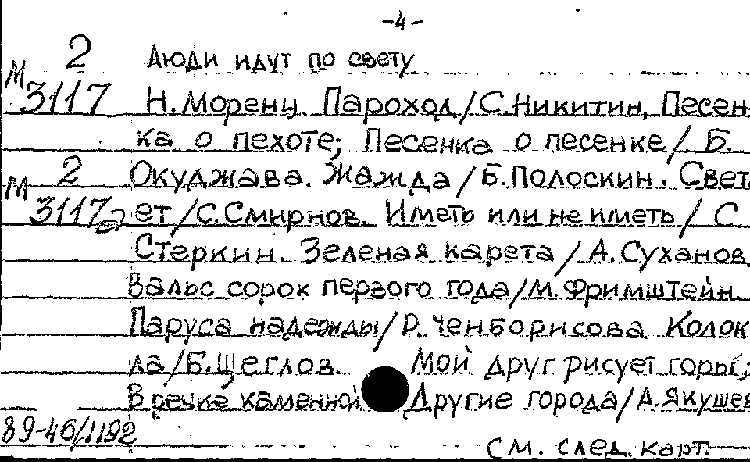 -4-
М 2 Люди идут по свету
3117 Н.Моренц. Пароход/С.Никитин, Песен
ка о пехоте; Песенка о песенке/ Б.
М 2 Окуджава. Жажда/Б.Полоскин. Свет
3117а ет/С.Смирнов. Иметь или не иметь/ С.
Стеркин. Зеленая карета/А.Суханов.
Вальс сорок первого года/М.Фримштейн.
Паруса надежды/Р.Ченборисова. Колок
ла/Б.Щеглов. Мой друг рисует горы;
В речке каменной Другие города/А.Якушев
89-46/1192
См. след. карт.